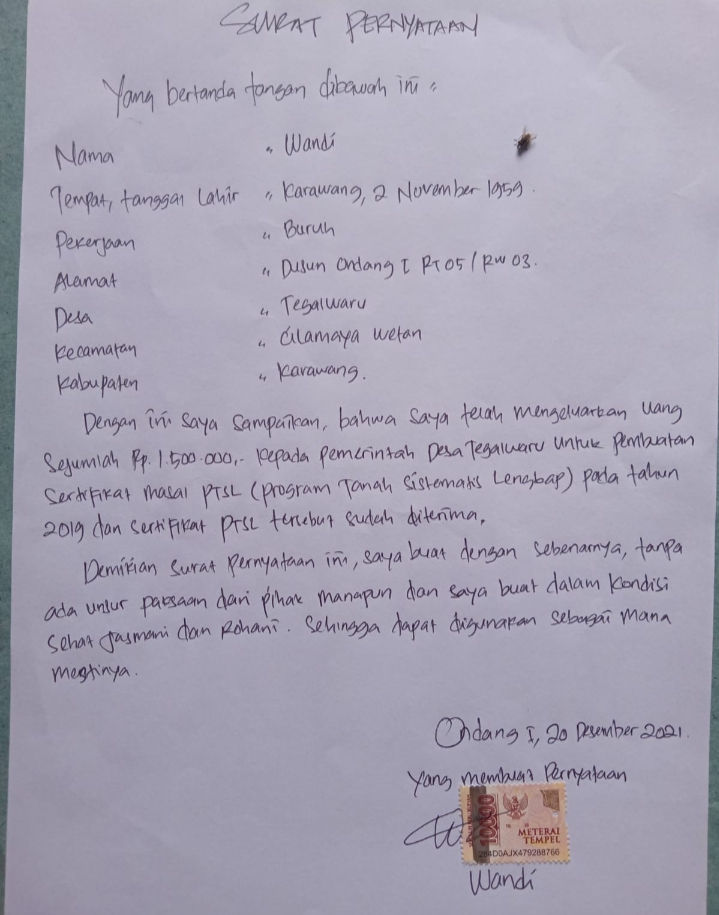 SURAT PERNYATAAN
Yang bertanda tangan dibawah ini :
Nama : Wandi
Tempat, tanggal Lahir : Karawang, 2 November 1959.
Pekerjaan : Buruh
Alamat : Dusun Ondang I RT 05 / RW 03.
Desa : Tegalwaru
Kecamatan : Cilamaya Wetan
Kabupaten : Karawang.
Dengan ini saya sampaikan, bahwa saya telah mengeluarkan uang
Sejumlah Rp. 1.500.000,- kepada pemerintah Desa Tegalwaru untuk pembuatan
Sertifikat masal PTSL (Program Tanah Sistematis Lengkap) pada tahun
2019 dan Sertifikat PTSL tersebut sudah diterima.
Demikian Surat Pernyataan ini, saya buat dengan sebenarnya, tanpa
ada unsur paksaan dari pihak manapun dan saya buat dalam kondisi
Sehat Jasmani dan Rohani. Sehingga dapat digunakan sebagai mana
mestinya.
Ondang I, 20 Desember 2021.
Yang membuat Pernyataan
10000
METERAI
TEMPEL
284D0AJX479288766
Wandi